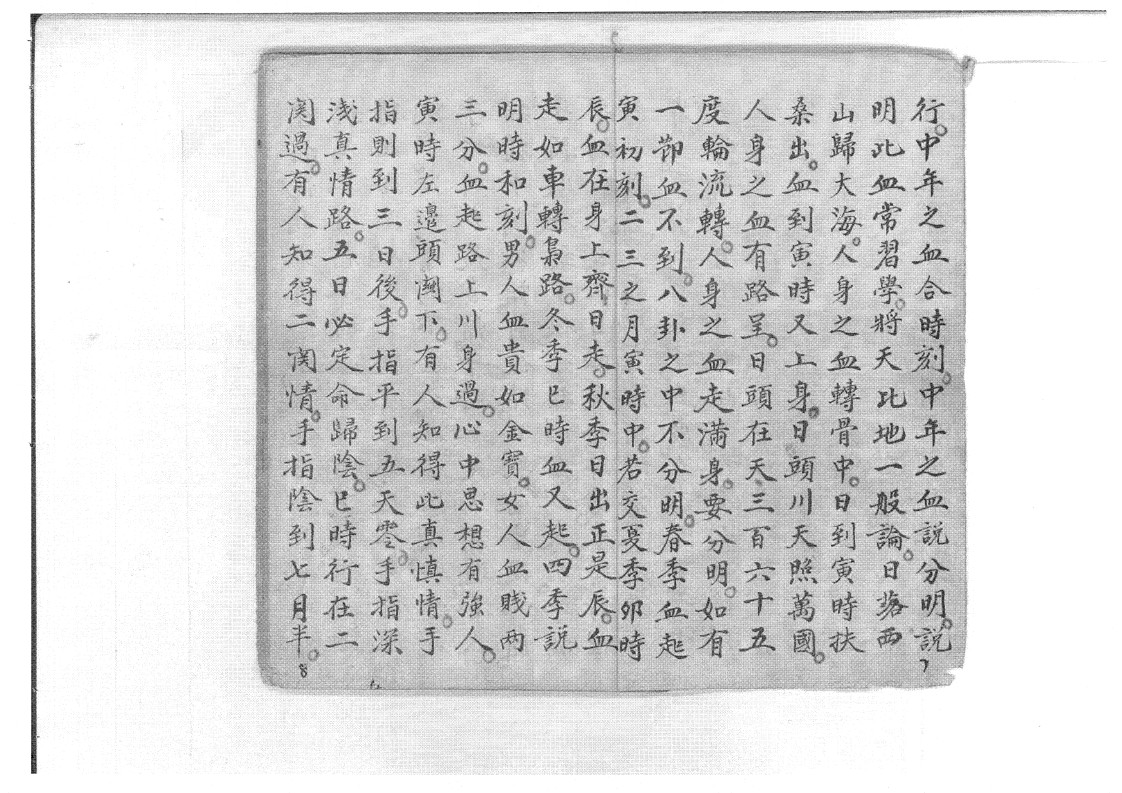 行。中年之血合時刻。中年之血説分明。説
明此血常習學。將天比地一般論。日落西
山歸大海。人身之血轉骨中。日到寅時扶
桑出。血到寅時又上身。日頭川天照萬國。
人身之血有路呈。日頭在天三百六十五
度輪流轉。人身之血走滿身。要分明。如有
一節血不到。八卦之中不分明。春季血起
寅初刻。二三之月寅時中。若交夏季卯時
辰。血在身上齊日走。秋季日出正是辰。血
走如車轉梟路。冬季巳時血又起。四季説
明時和刻。男人血貴如金寶。女人血賤两
三分。血起路上川身過。心中思想有強人。
寅時左邊頭闽下。有人知得此真慎情。手
指則到三日後。手指平到五天零。手指深
浅真情路。五日必定命歸陰。巳時行在二
関過。有人知得二関情。手指陰到七月半。
7
8